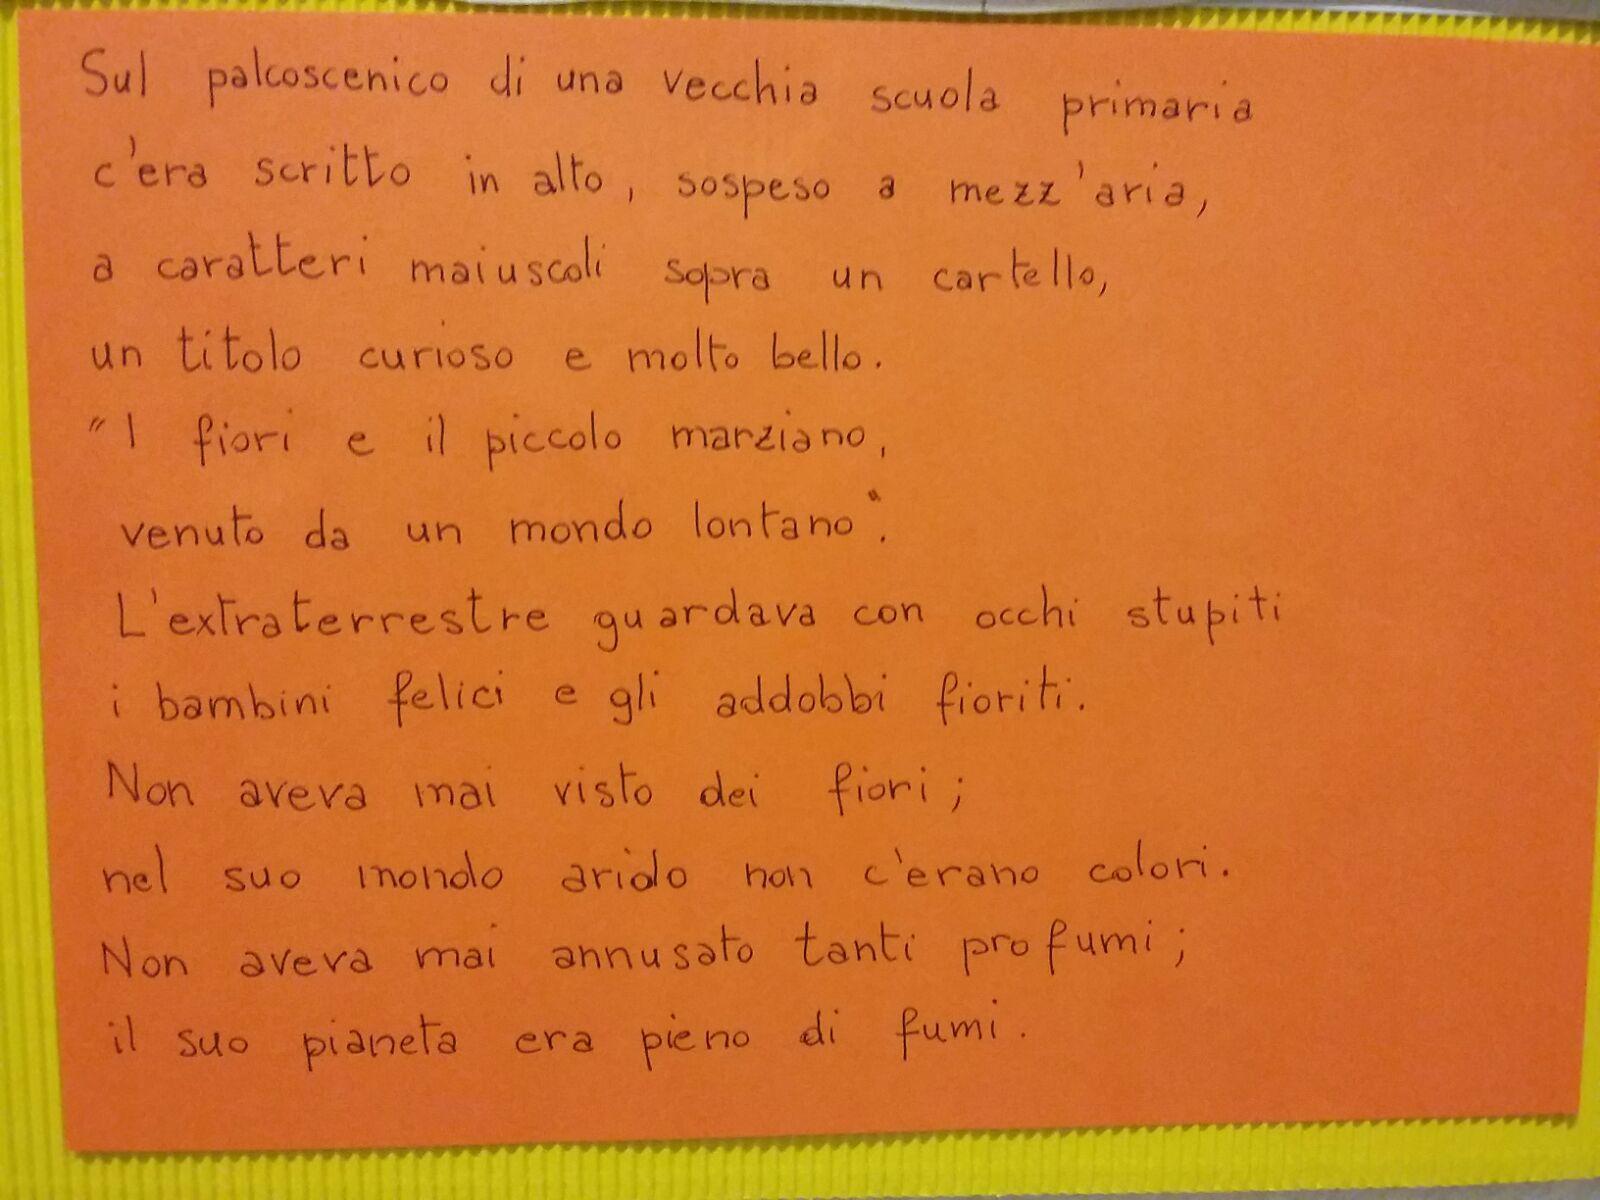 Sul palcoscenico di una vecchia scuola primaria
c'era scritto in alto, sospeso a mezz'aria,
a caratteri maiuscoli sopra un cartello,
un titolo curioso e molto bello.
"I fiori e il piccolo marziano,
venuto da un mondo lontano".
L'extraterrestre guardava con occhi stupiti
i bambini felici e gli addobbi fioriti.
Non aveva mai visto dei fiori;
nel suo mondo arido non c'erano colori.
Non aveva mai annusato tanti profumi;
il suo pianeta era pieno di fumi.